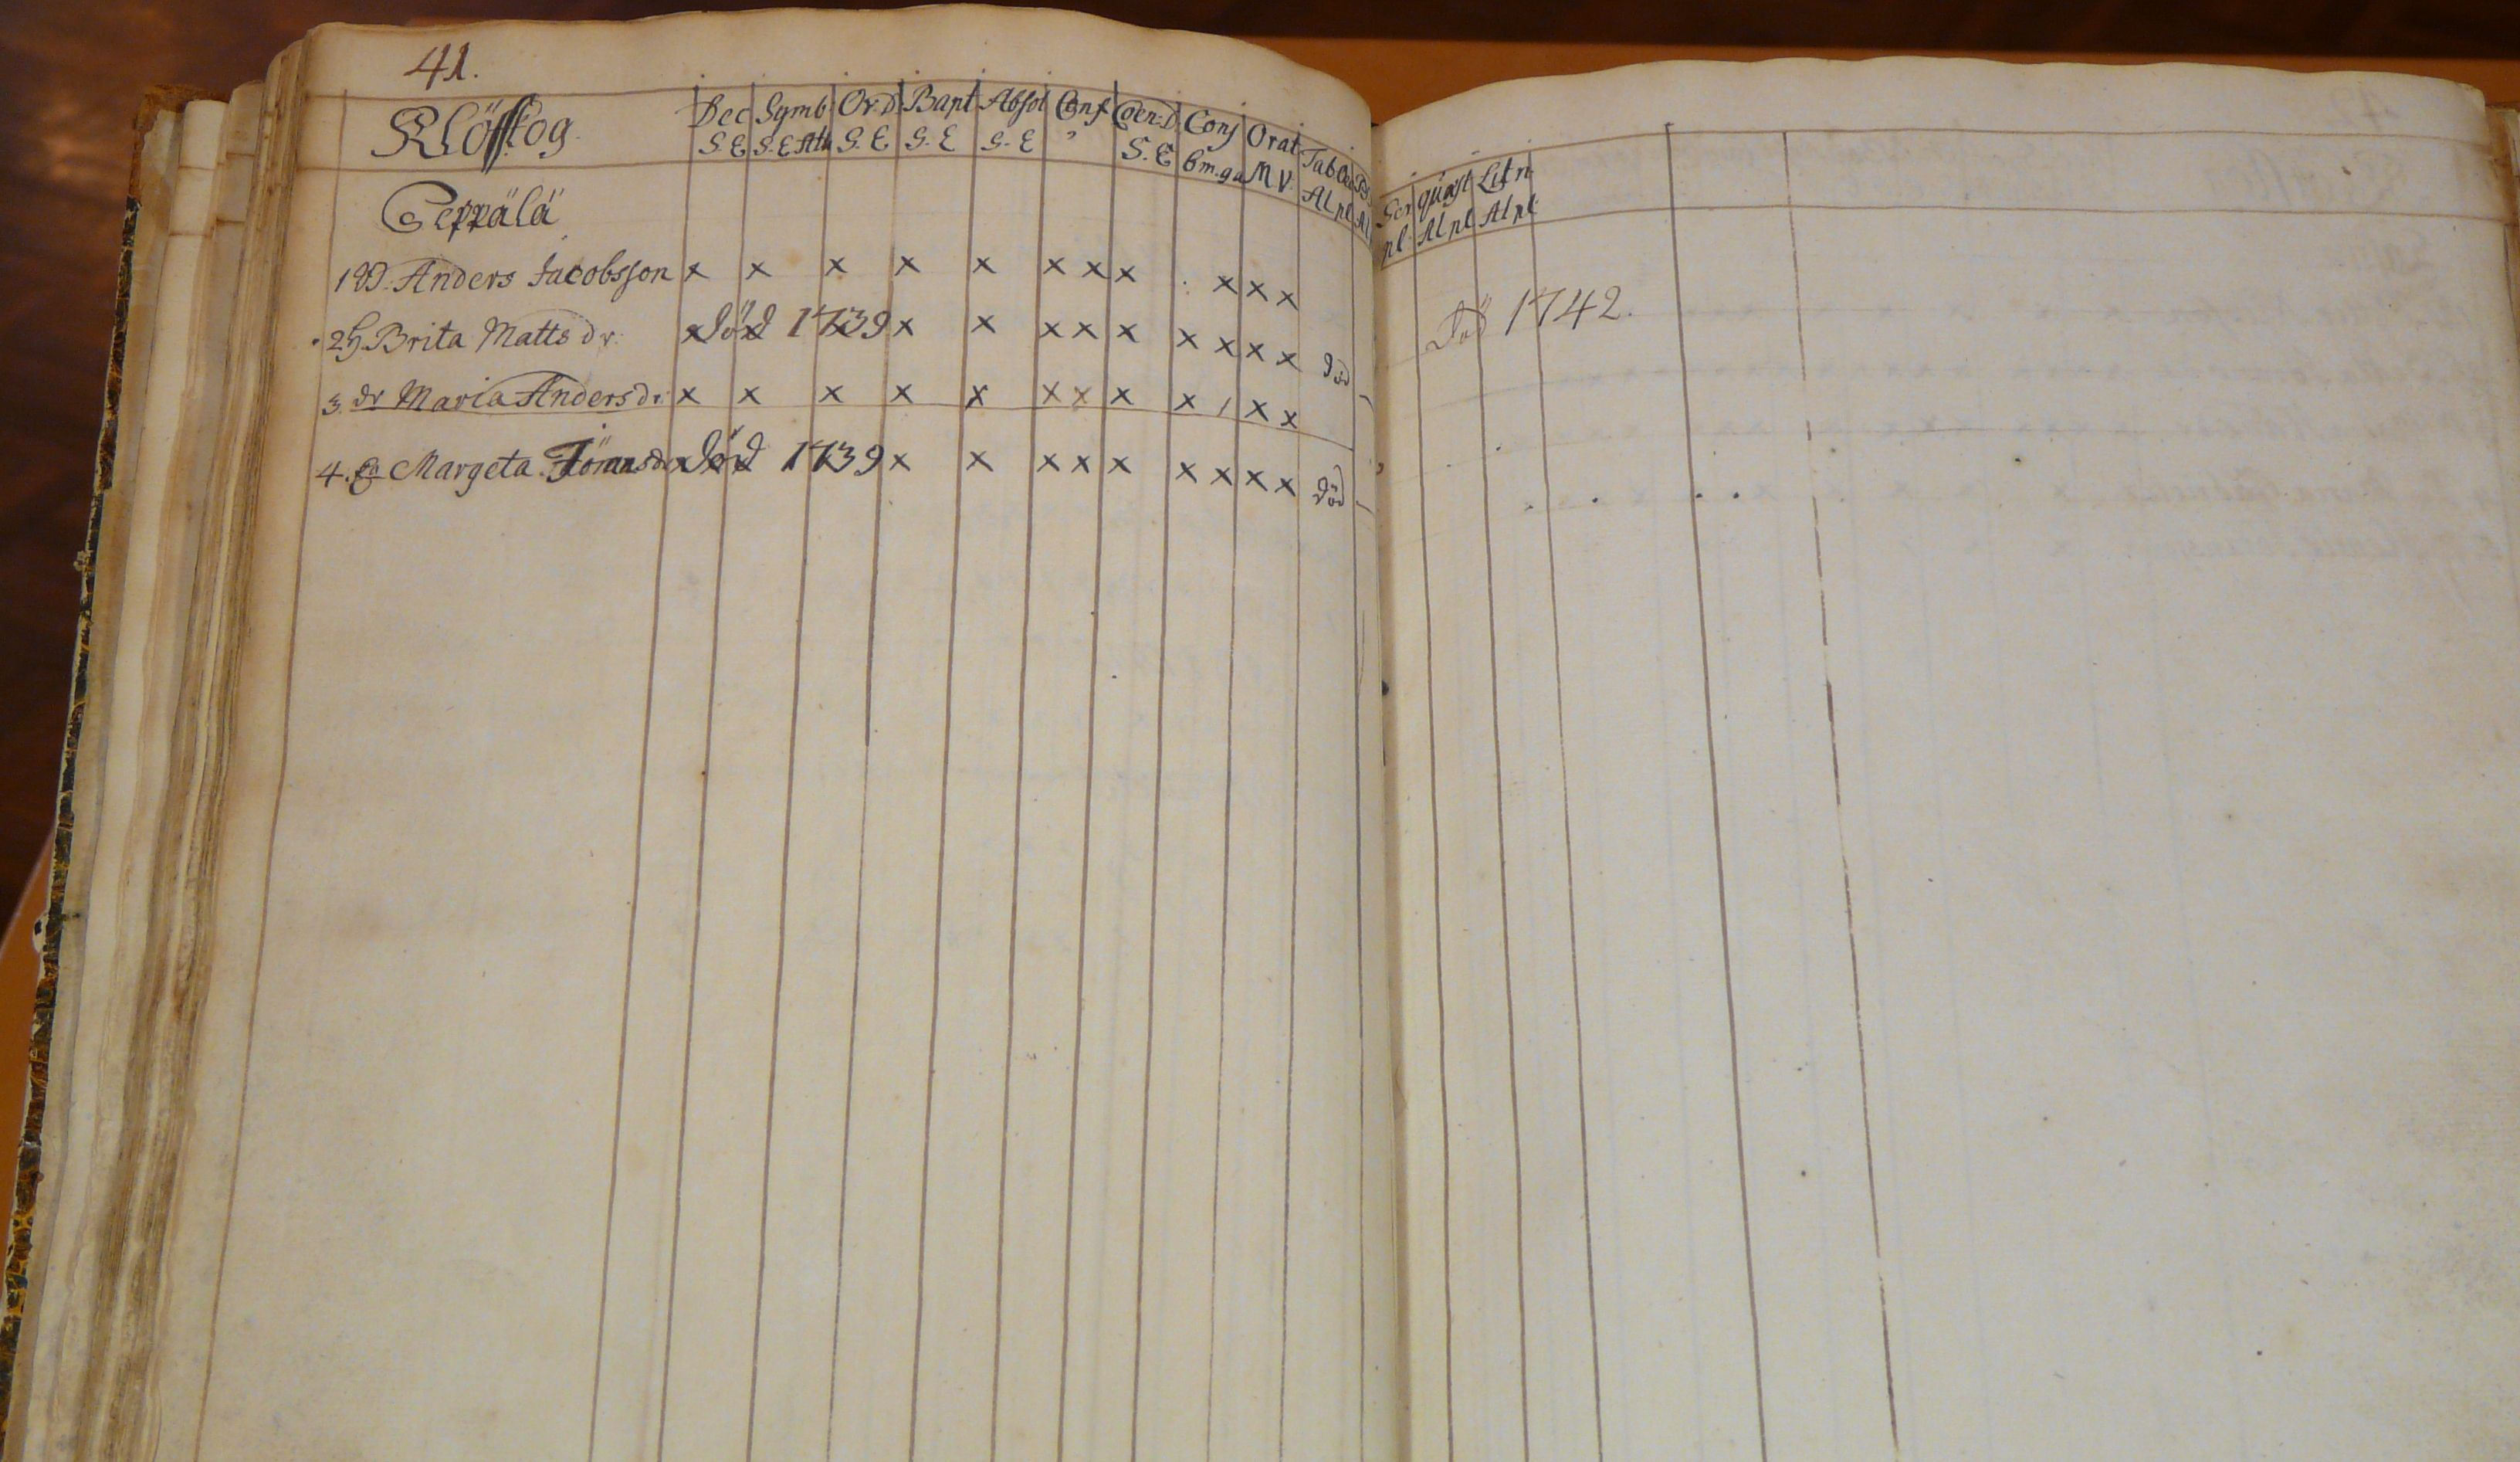 41.
Klöfskog. Dec Symb Or.D. Bapt Absol Conf Coen:D. Conf Orat Tab
S. E S. E Ath S. E S. E S. E S. E M V. Al pl Al
quæst Lit n
pl. Al pl Al pl
Seppälä
1 W. Anders Jacobsson x x x x x x x x x x x
Död 1742.
2 H. Brita Matts dr. x död 1739 x x x x x x x x x död
3. dr Maria Anders dr. x x x x x x x x x / x x
4. Margeta dr x död 1739 x x x x x x x x x död